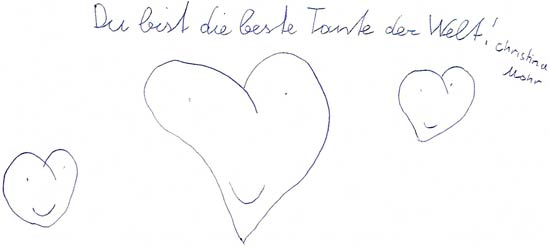 Du bist die beste Tante der Welt!
Christina
Mohr